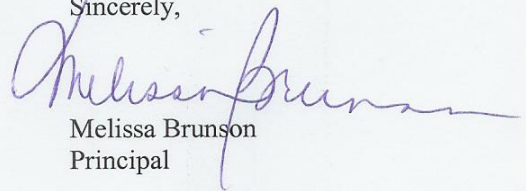 Sincerely,
Melissa Brunson
Melissa Brunson
Principal